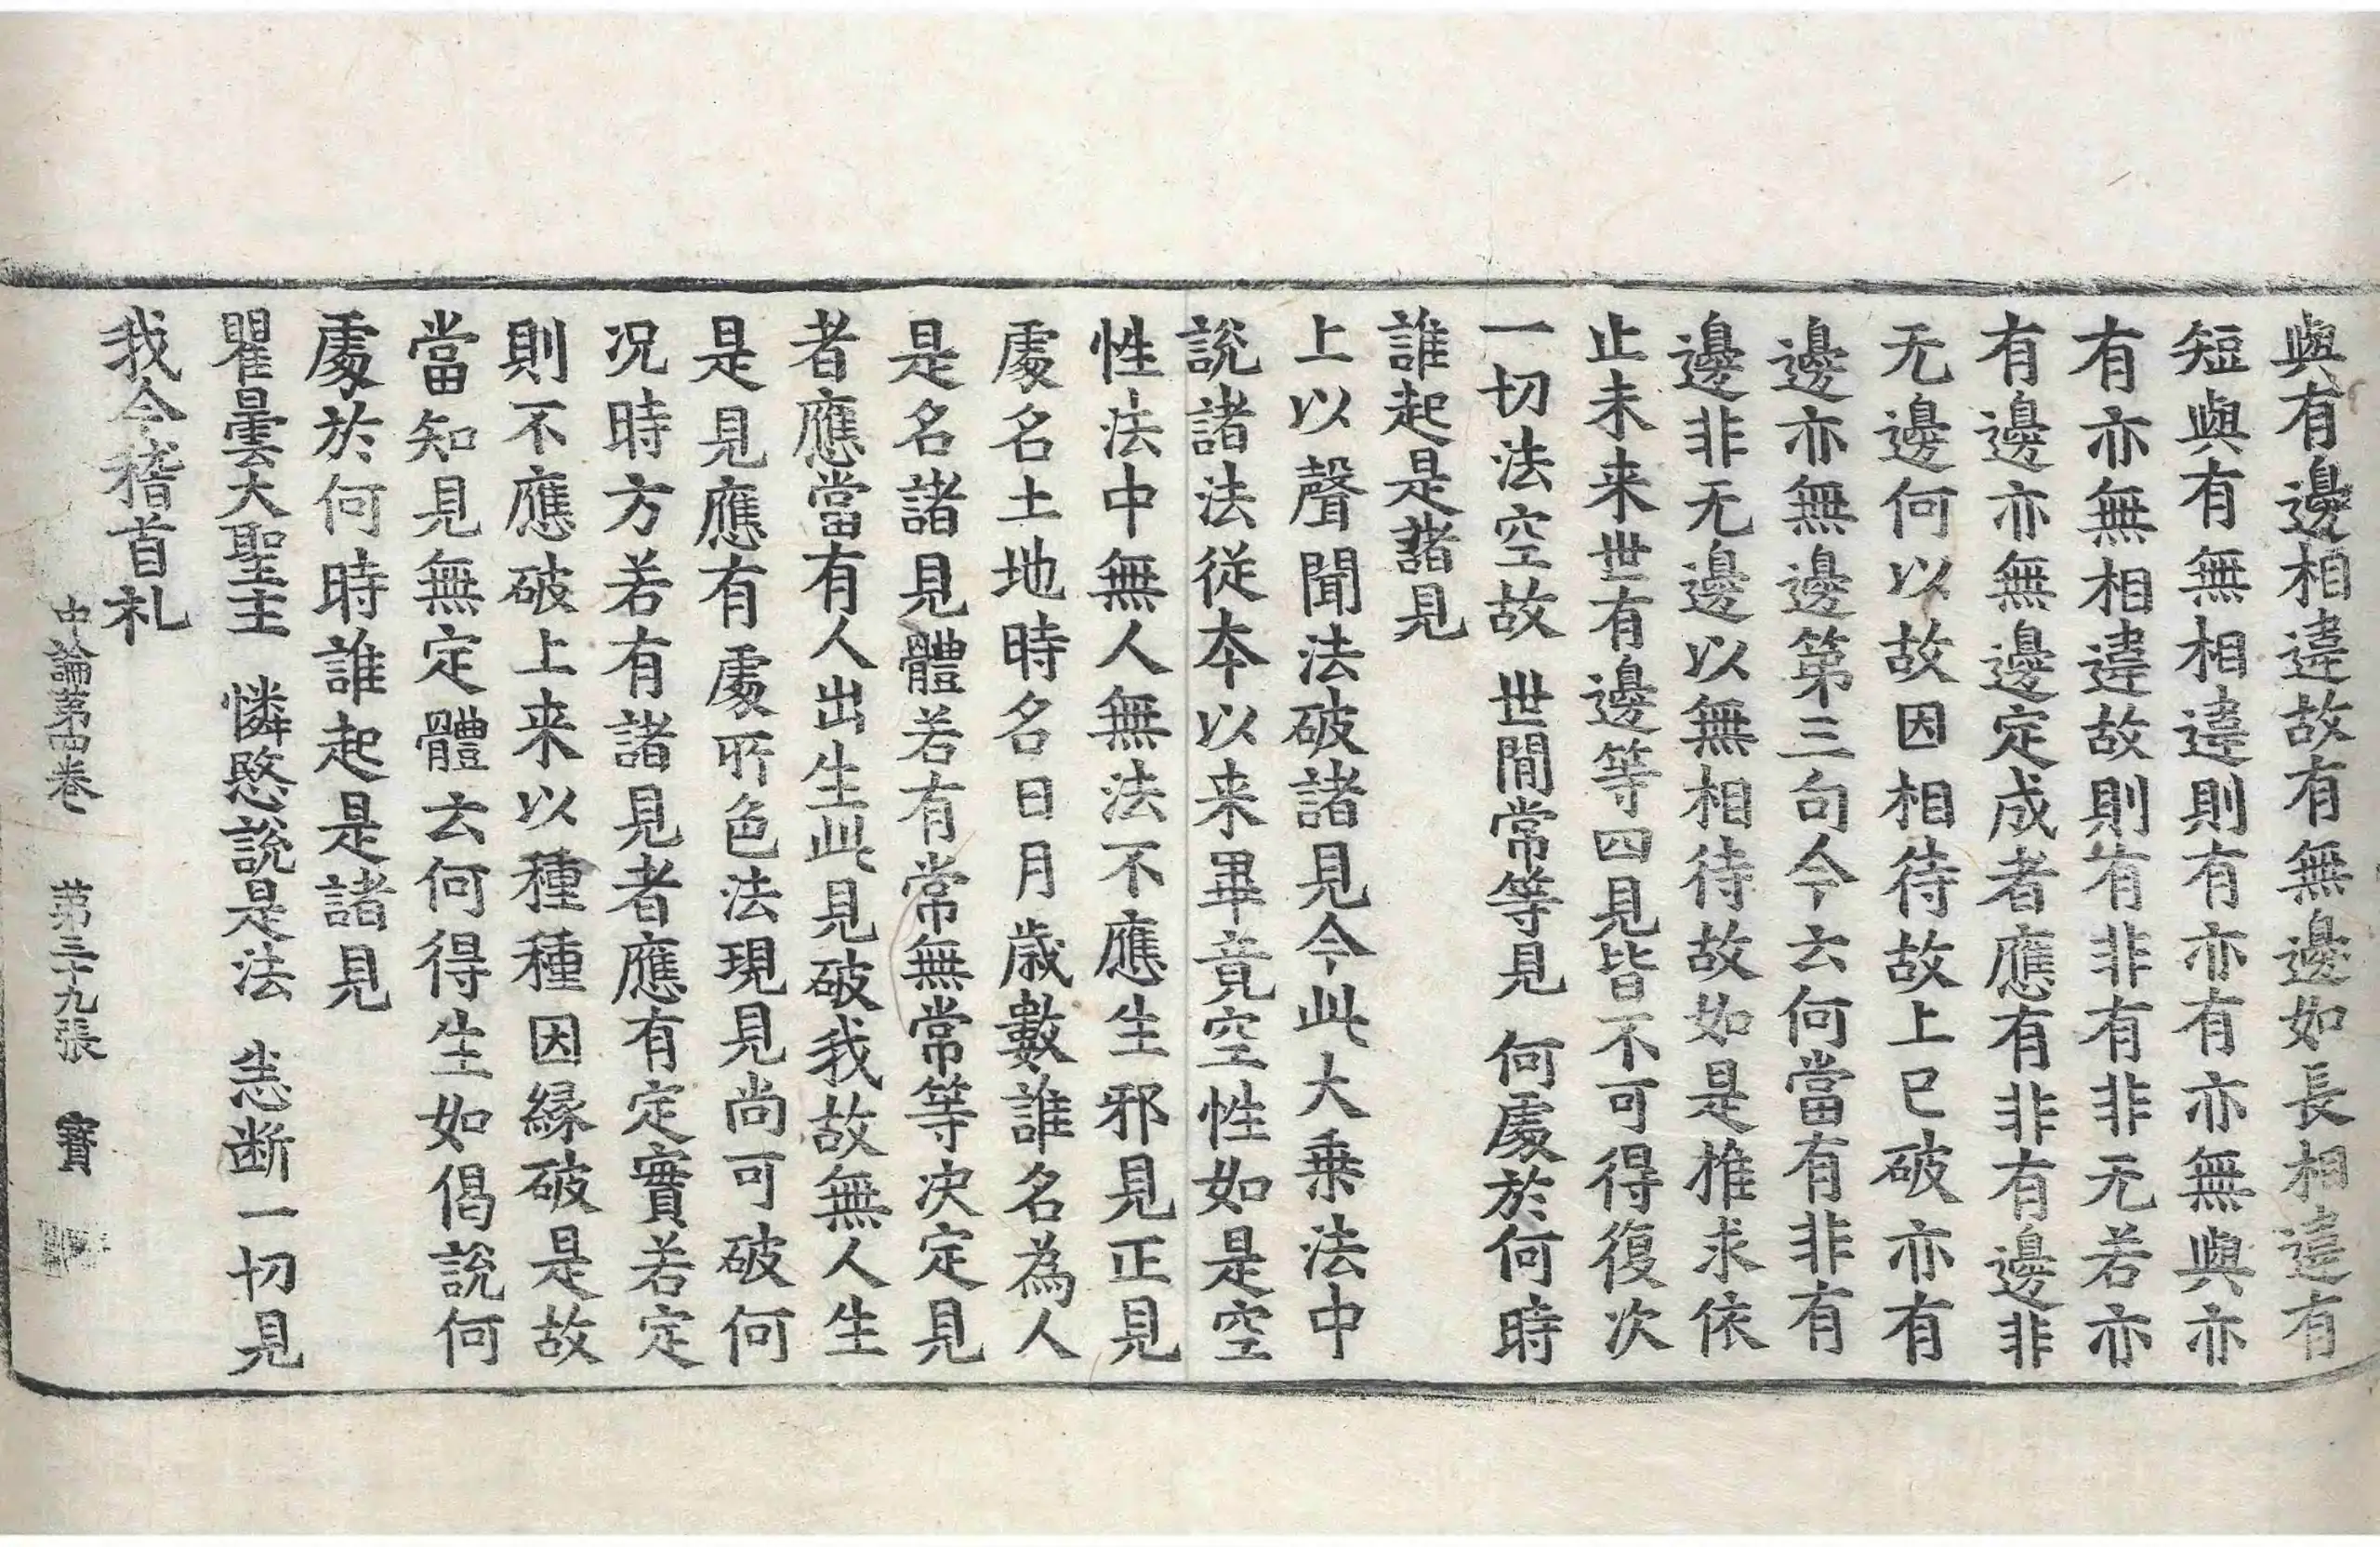 與有邊相違故有無邊如長相違有
短與有無相違則有亦有亦無與亦
有亦無相違故則有非有非无若亦
有邊亦無邊定成者應有非有邊非
无邊何以故因相待故上已破亦有
邊亦無邊第三句今云何當有非有
邊非无邊以無相待故如是推求依
止未来世有邊等四見皆不可得復次
一切法空故 世間常等見 何處於何時
誰起是諸見
上以聲聞法破諸見今此大乗法中
説諸法従本以来畢竟空性如是空
性法中無人無法不應生邪見正見
處名土地時名日月歲數誰名為人
是名諸見體若有常無常等决定見
者應當有人出生此見破我故無人生
是見應有處所色法現見尚可破何
况時方若有諸見者應有定實若定
則不應破上来以種種因緣破是故
當知見無定體云何得生如偈説何
處於何時誰起是諸見
瞿曇大聖主 憐愍説是法 悉断一切見
我今稽首礼
中論第四卷 第三十九張 寶